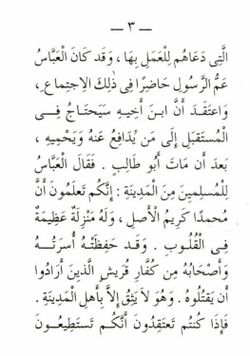 — ٣ —
الَّتِى دَعَاهُم لِلْعَمَلِ بِهَا ، وَقَد كَانَ الْعَبَّاسُ
عَمُّ الرَّسُولِ حَاضِرًا فِى ذٰلِكَ الِاجتِمَاعِ ،
وَاعتَقَدَ أَنَّ ابنَ أَخِيهِ سَيَحتَاجُ فِى
الْمُستَقبَلِ إِلَى مَن يُدَافِعُ عَنهُ وَيَحْمِيهِ ،
بَعدَ أَن مَاتَ أَبُو طَالِبٍ . فَقَالَ الْعَبَّاسُ
لِلْمُسلِمِينَ مِنَ الْمَدِينَةِ : إِنَّكُم تَعلَمُونَ أَنَّ
مُحمدًا كَرِيمُ الْأَصلِ ، وَلَهُ مَنْزِلَةٌ عَظِيمَةٌ
فِى الْقُلُوبِ . وَقَد حَفِظَتْهُ أُسرَتُهُ
وَأَصْحَابُهُ مِن كُفَّارِ قُرَيشٍ الَّذِينَ أَرَادُوا
أَن يَقْتُلُوهُ . وَهُوَ لَا يَثِقُ إِلَّا بِأَهلِ الْمَدِينَةِ .
فَإِذَا كُنتُم تَعتَقِدُونَ أَنَّكُم تَستَطِيعُونَ